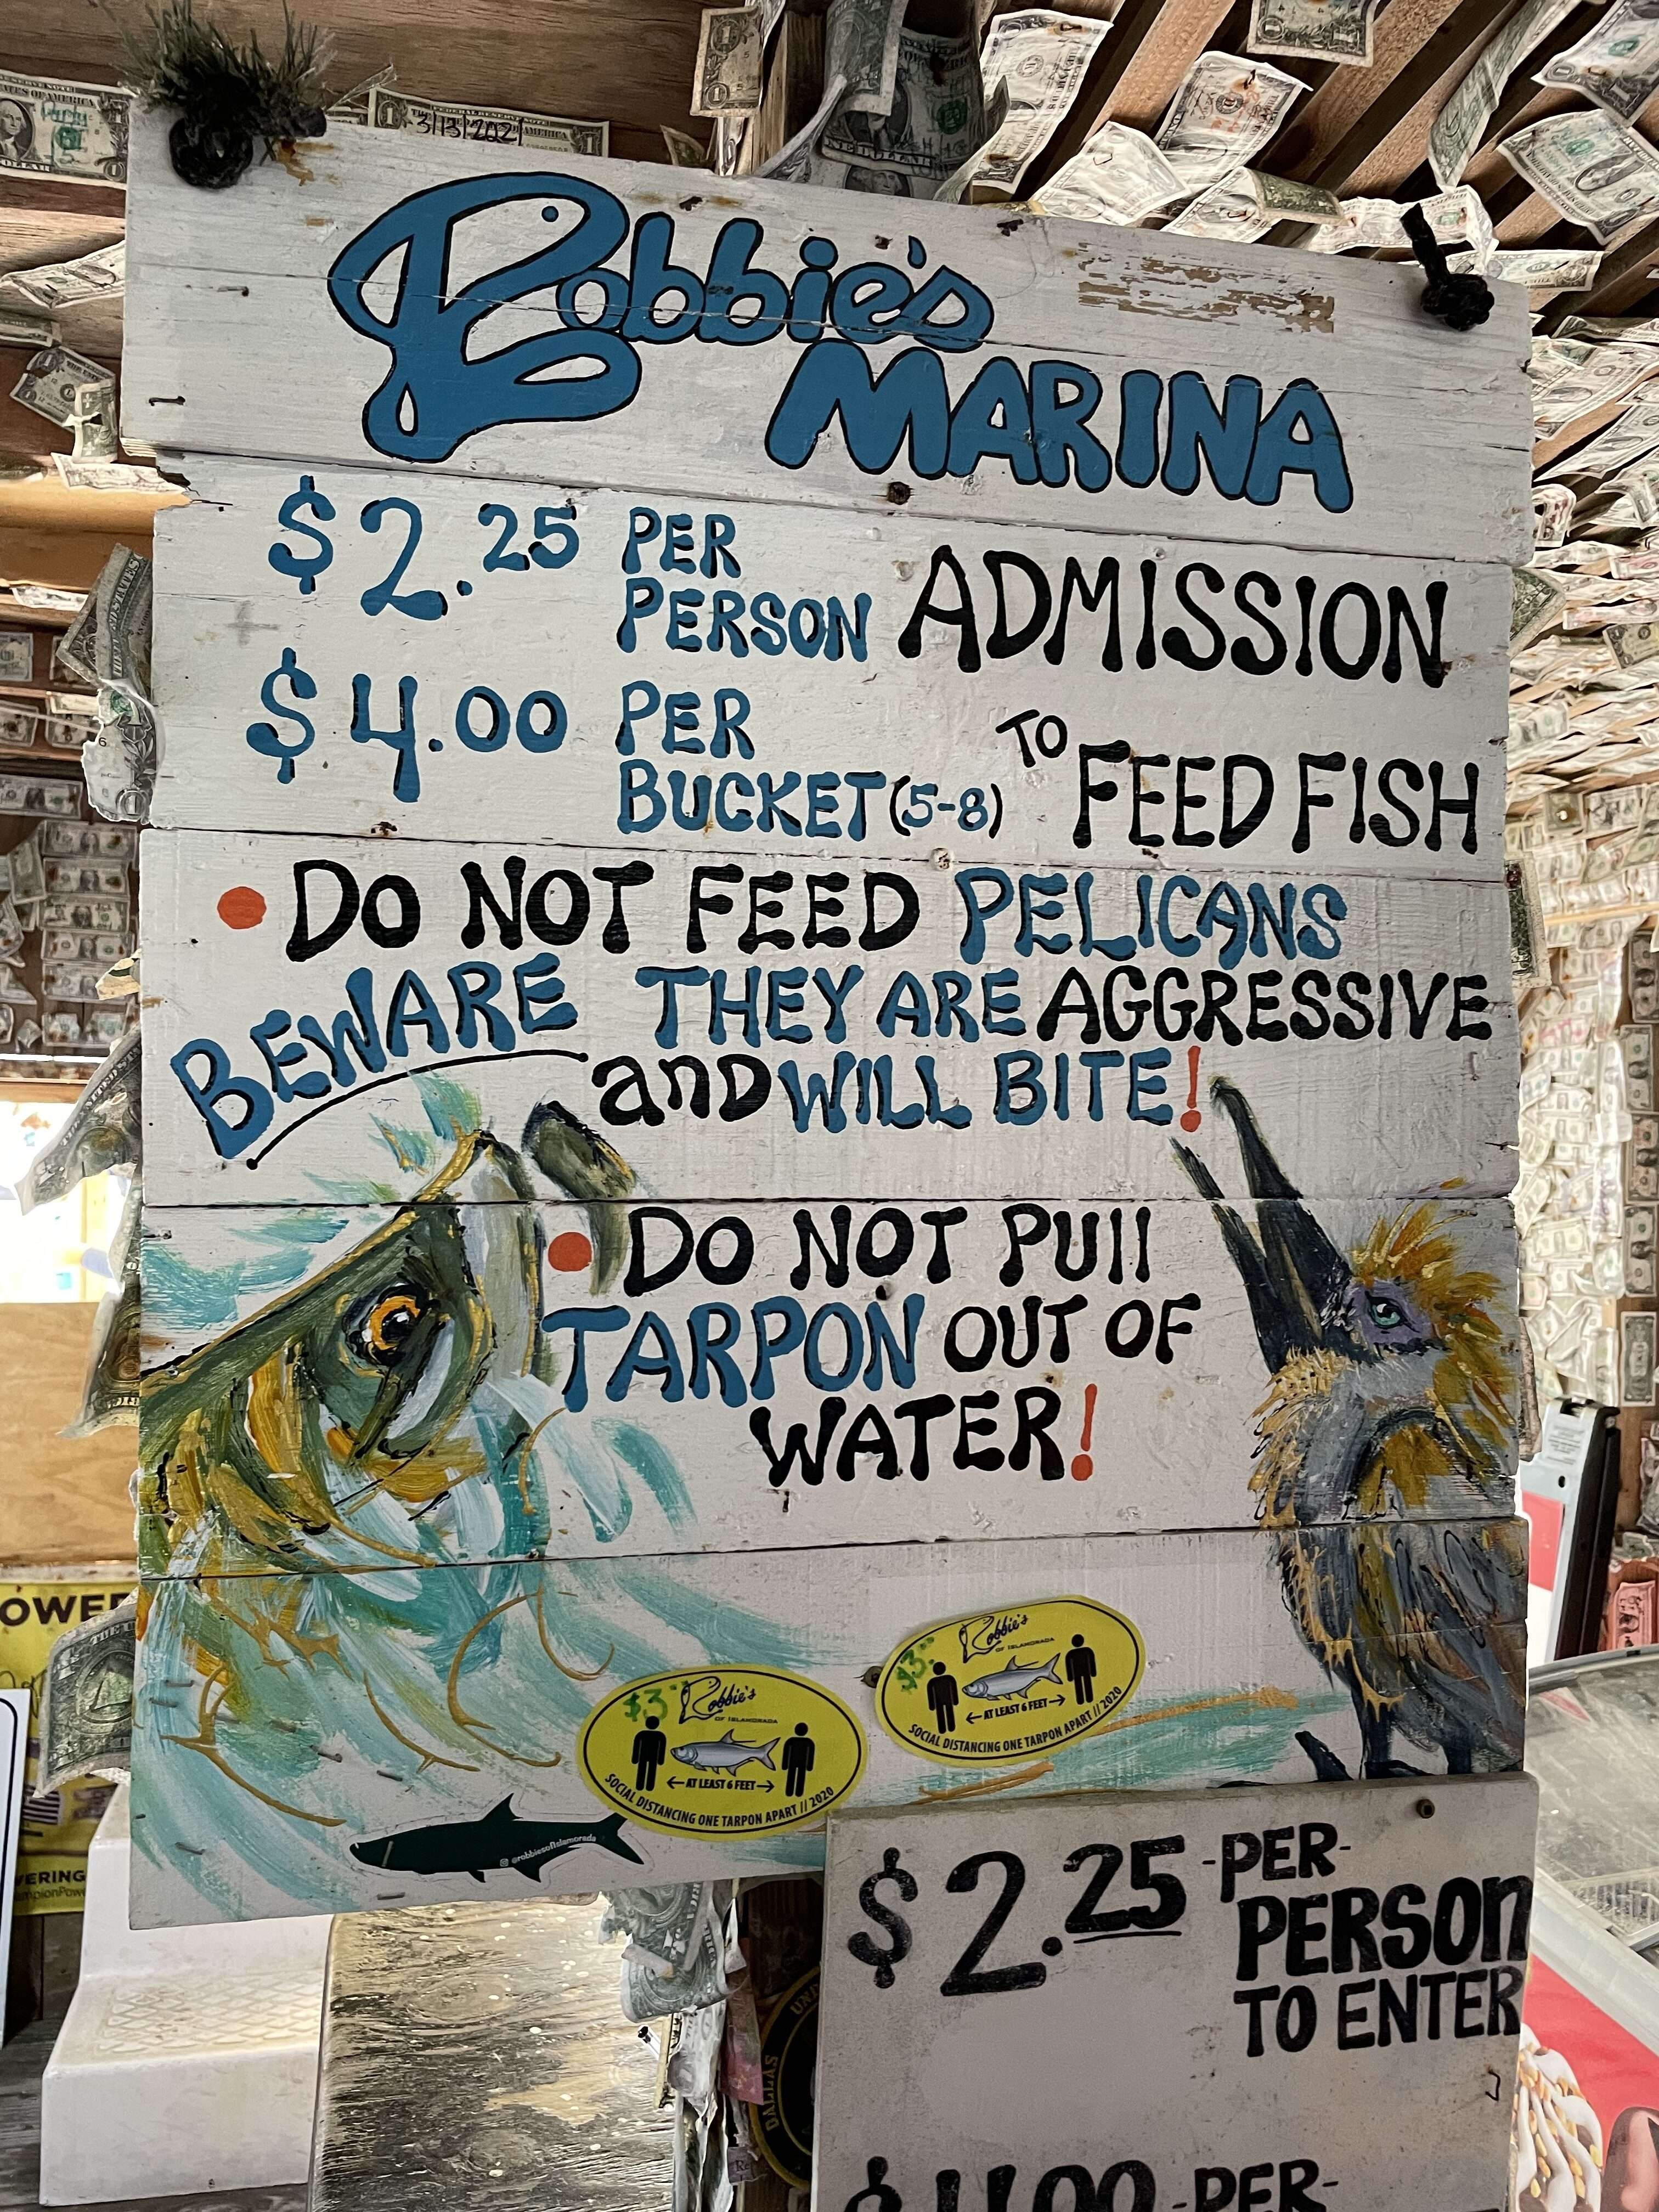 3/13/2021
Robbie's
MARINA
$2.25 PER PERSON ADMISSION
$4.00 PER BUCKET (5-8) TO FEED FISH
• DO NOT FEED PELICANS
BEWARE THEY ARE AGGRESSIVE
and WILL BITE!
• DO NOT PUll
TARPON OUT OF
WATER!
$3.
Robbie's
OF ISLAMORADA
←AT LEAST 6 FEET→
SOCIAL DISTANCING ONE TARPON APART // 2020
$3
Robbie's
OF ISLAMORADA
←AT LEAST 6 FEET→
SOCIAL DISTANCING ONE TARPON APART // 2020
@robbiesofislamorada
$2.25 -PER-
PERSON
TO ENTER
-PER-
DALLAS